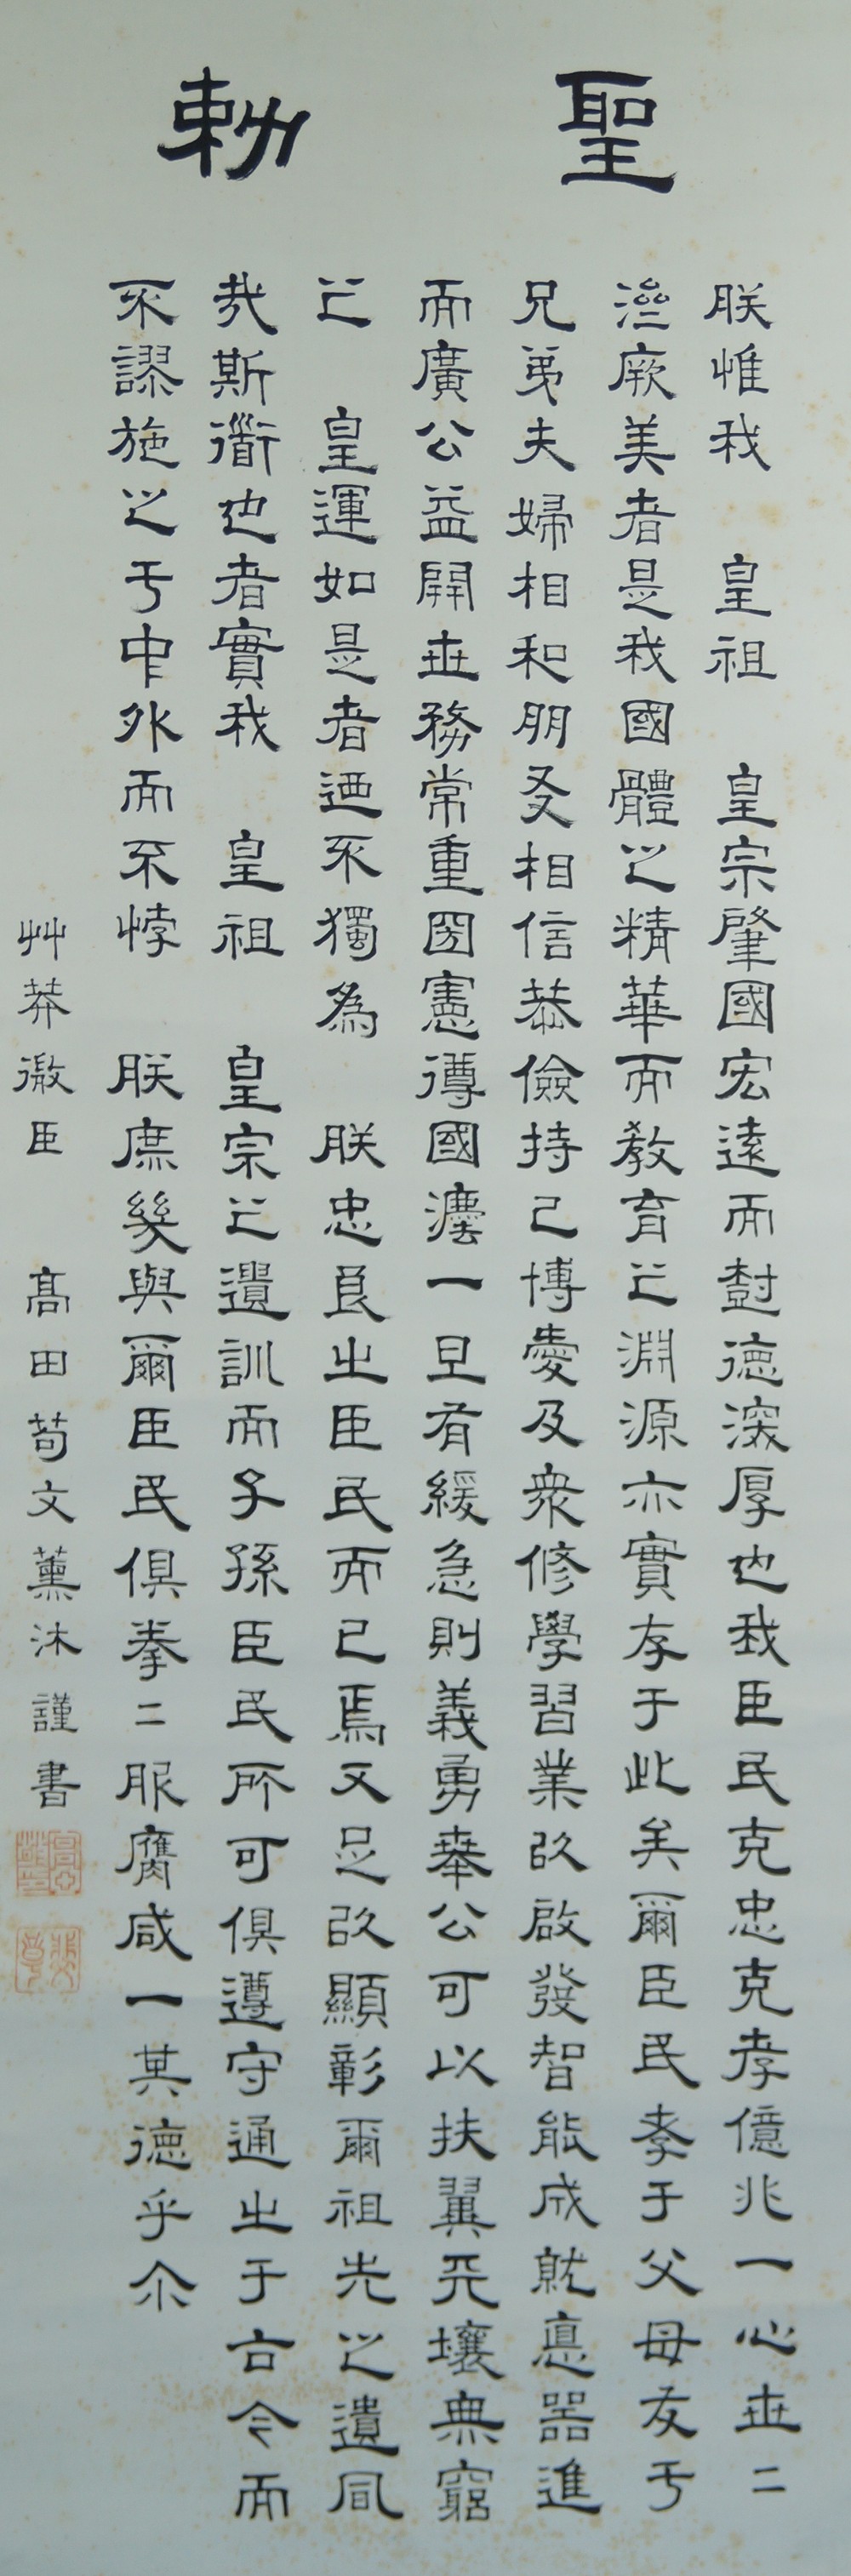 聖勅
朕惟我 皇祖 皇宗肇國宏遠而尌德深厚也我臣民克忠克孝億兆一心世二
濟厥美者是我國體之精華而教育之淵源亦實存于此矣爾臣民孝于父母友于
兄弟夫婦相和朋友相信恭儉持己博愛及衆修學習業以啟發智能成就悳器進
而廣公益開世務常重圀憲遵國灋一旦有緩急則義勇奉公可以扶翼天壤無窮
之 皇運如是者迺不獨為 朕忠良之臣民而已焉又足以顯彰爾祖先之遺風
哉斯衟也者實我 皇祖 皇宗之遺訓而子孫臣民所可俱遵守通之于古今而
不謬施之于中外而不悖 朕庶幾與爾臣民俱拳二服膺咸一其德乎尒
艸莽微臣 髙田苟文薰沐謹書